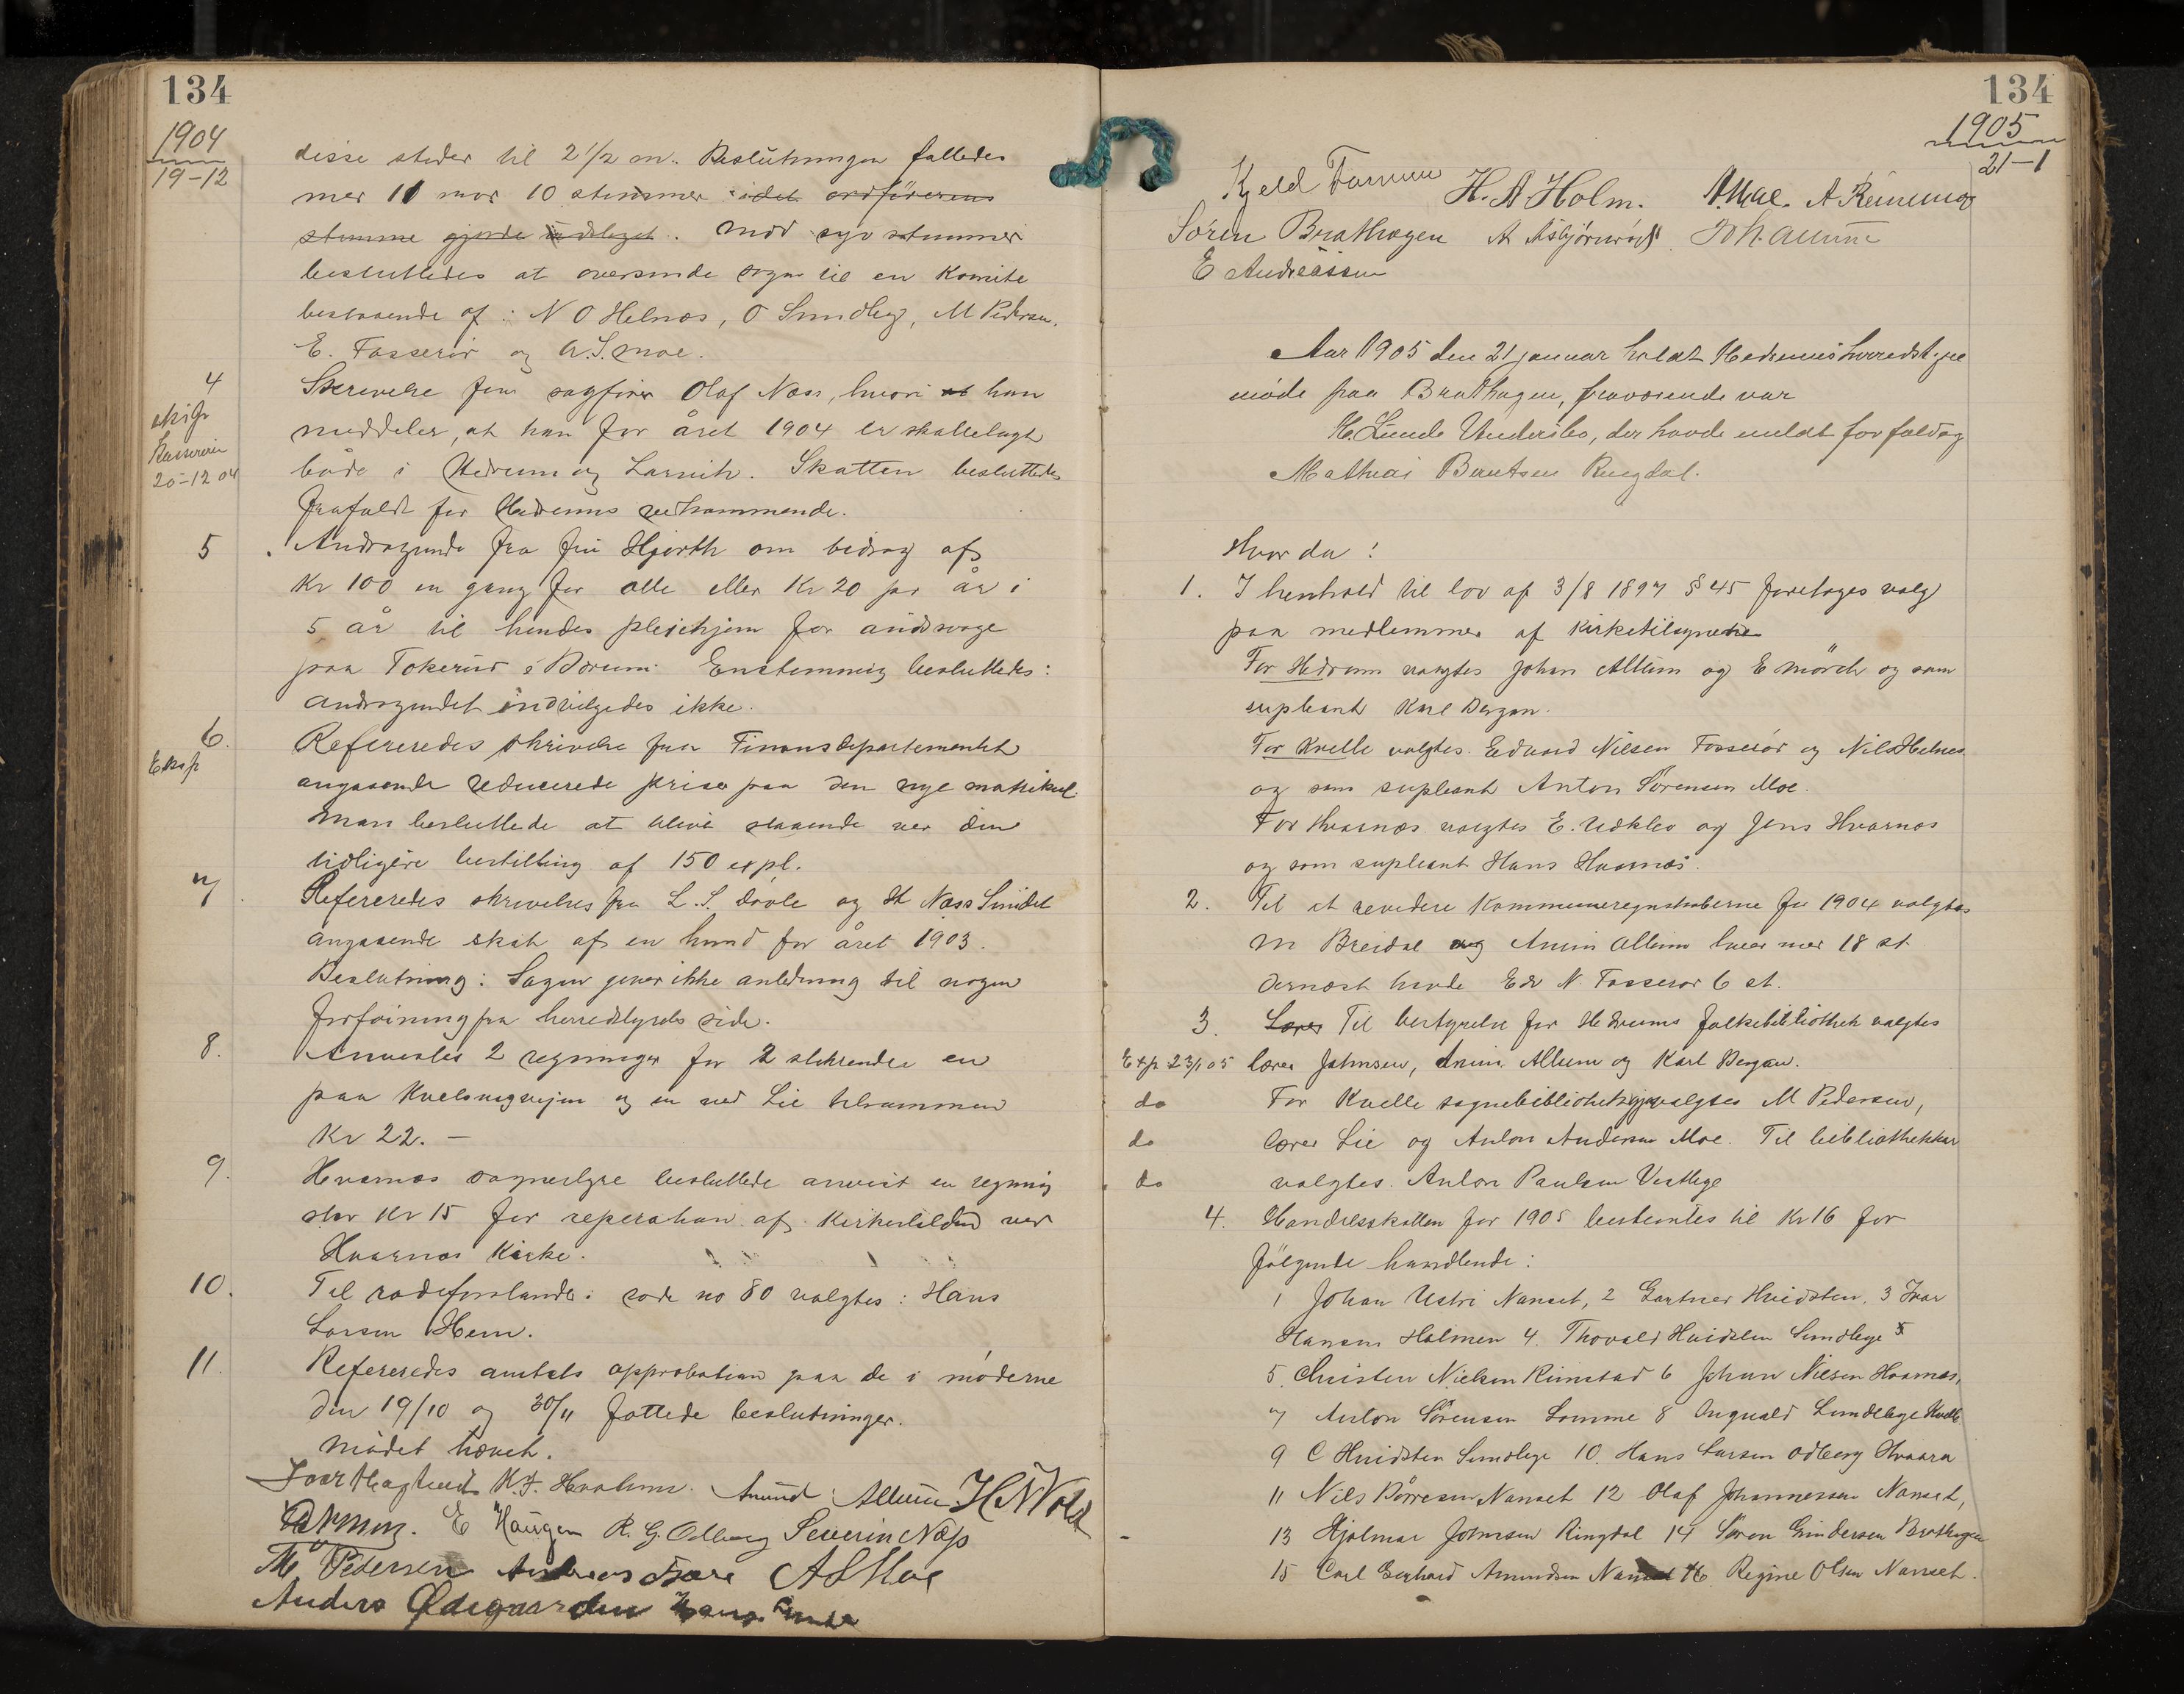 134
1904
19-12
disse steder til 2 1/2 m. Beslutningen fattedes
med 11 mod 10 stemmer idet ordförerens
stemme gjorde udslaget. Mod syv stemmer
besluttedes at oversende sagen til en Komite
bestaaende af: N O Helnæs, O Sundby, M Pedersen,
E. Fosserör og A. S. Moe.
4
Skrivelse fra sagfører Olaf Næss, hvori at han
meddeler, at han for året 1904 er skattelagt
både i Hedrum og Larvik. Skatten besluttedes
frafaldt for Hedrums vedkommende.
Kassereren
20-12 04
5
Andragende fra fru Hjorth om bidrag af
Kr 100 en gang for alle eller Kr 20 pr år i
5 år til hendes pleiehjem for åndssvage
paa Tokerud i Bærum. Enstemmig besluttedes:
andragendet indvilgedes ikke.
6.
Eksp
Refereredes skrivelse fra Finansdepartementet
angaaende reducerede priser paa den nye matrikul.
Man besluttede at blive staaende ved den
tidligere bestilling af 150 expl.
7.
Refereredes skrivelser fra L. S. og H Næss Sundet
angaaende skat af en hund for året 1903.
Beslutning: Sagen giver ikke anledning til nogen
forføining fra herredstyrets side.
8.
Anvistes 2 regninger for 2 stikrender en
paa Kvelsvegveien og en ved Lie tilsammen
Kr 22. —
9.
Hvarnæs sognestyre besluttede anvist en regning
stor Kr 15 for reperation af Kirkestalden ved
Hvarnæs Kirke.
10.
Til rodeforstander i rode no 80 valgtes: Hans
Larsen Hem.
11.
Refereredes amtets approbation paa de i møderne
den 19/10 og 30/11 fattede beslutninger.
Mødet hævet.
K. F. Anund Allum H N Vold
E Haugen R. G. Odberg Severin Næss
M Pedersen Andreas A S Moe
Anders Ødegaarden
134
1905
21-1
Kjeld H. A Holm. A. Moe.
Søren Brathagen Joh. Allum
E Andreassen
Aar 1905 den 21 januar holdt Hedrums herredstyre
møde paa Brathagen, fraværende var
H. Lunde Undersbo, der havde meldt forfald og
Mathias Berntsen Ringdal.
Hvor da:
1. I henhold til lov af 3/8 1897 § 45 foretoges valg
paa medlemmer af kirketilsynene
For Hedrum valgtes Johan Allum og E Mörch og som
supleant Karl Bergan.
For Kvelle valgtes Edvard Nilsen Fosserör og Nils Helnes
og som supleant Anton Sørensen Moe.
For Hvarnæs valgtes E. Udklev og Jens Hvarnæs
og som supleant Hans Hvarnæs.
2. Til at revidere Kommuneregnskaberne for 1904 valgtes
M Breidal og Anun Allum hver med 18 st.
dernæst havde Edv N. Fosserör 6 st.
3. Lærer Til bestyrelse for Hedrums folkebibliothek valgtes
Exp 23/1 05 lærer Johnsen, Anun Allum og Karl Bergan.
do For Kvelle sognebibliothek valgtes M Pedersen,
do lærer Lie og Anton Andersen Moe. Til bibliothekar
do valgtes Anton Paulsen Vestby
4. Handelsskatten for 1905 bestemtes til Kr 16 for
følgende handlende:
1 Johan Ustri Nanset, 2 Gartner Hvidsten, 3 Ivar
Hansen Holmen 4. Thovald Hvidsten Sundbye 5
5. Christen Nielsen Rimstad 6 Johan Nilsen Hvarnæs,
7 Anton Sörensen Lomme 8 Angvald Sundbye Kvelle
9 C Hvidsten Sundbye 10. Hans Larsen Odberg
11 Nils Börresen Nanset 12 Olaf Johannessen Nanset,
13 Hjalmar Johnsen Ringdal 14 Søren Gundersen Brathagen
15 Carl Gerhard Amundsen Nanset 16 Regine Olsen Nanset.